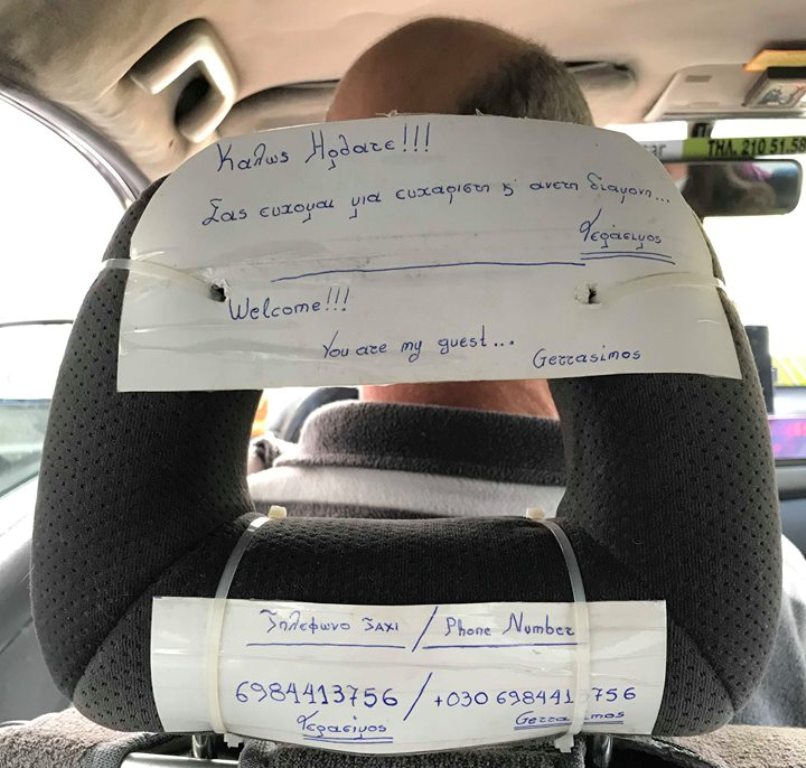 ΤΗΛ. 210 51.58
Καλως Ηρθατε!!!
Σας ευχομαι μια ευχαριστη κ' ανετη διαμονη...
Γεράσιμος
Welcome!!!
You are my guest...
Gerrasimos
Τηλεφωνο ΤΑΧΙ / Phone Number
6984413756 / +030 698441 756
Γερασιμος Gerra imos